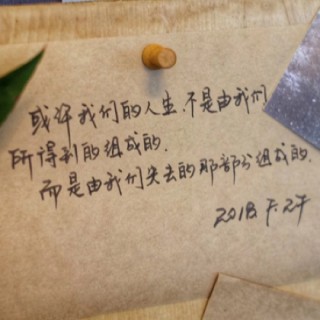 或许我们的人生.不是由我们
所得到的组成的.
而是由我们失去的那部分组成的.
2018.